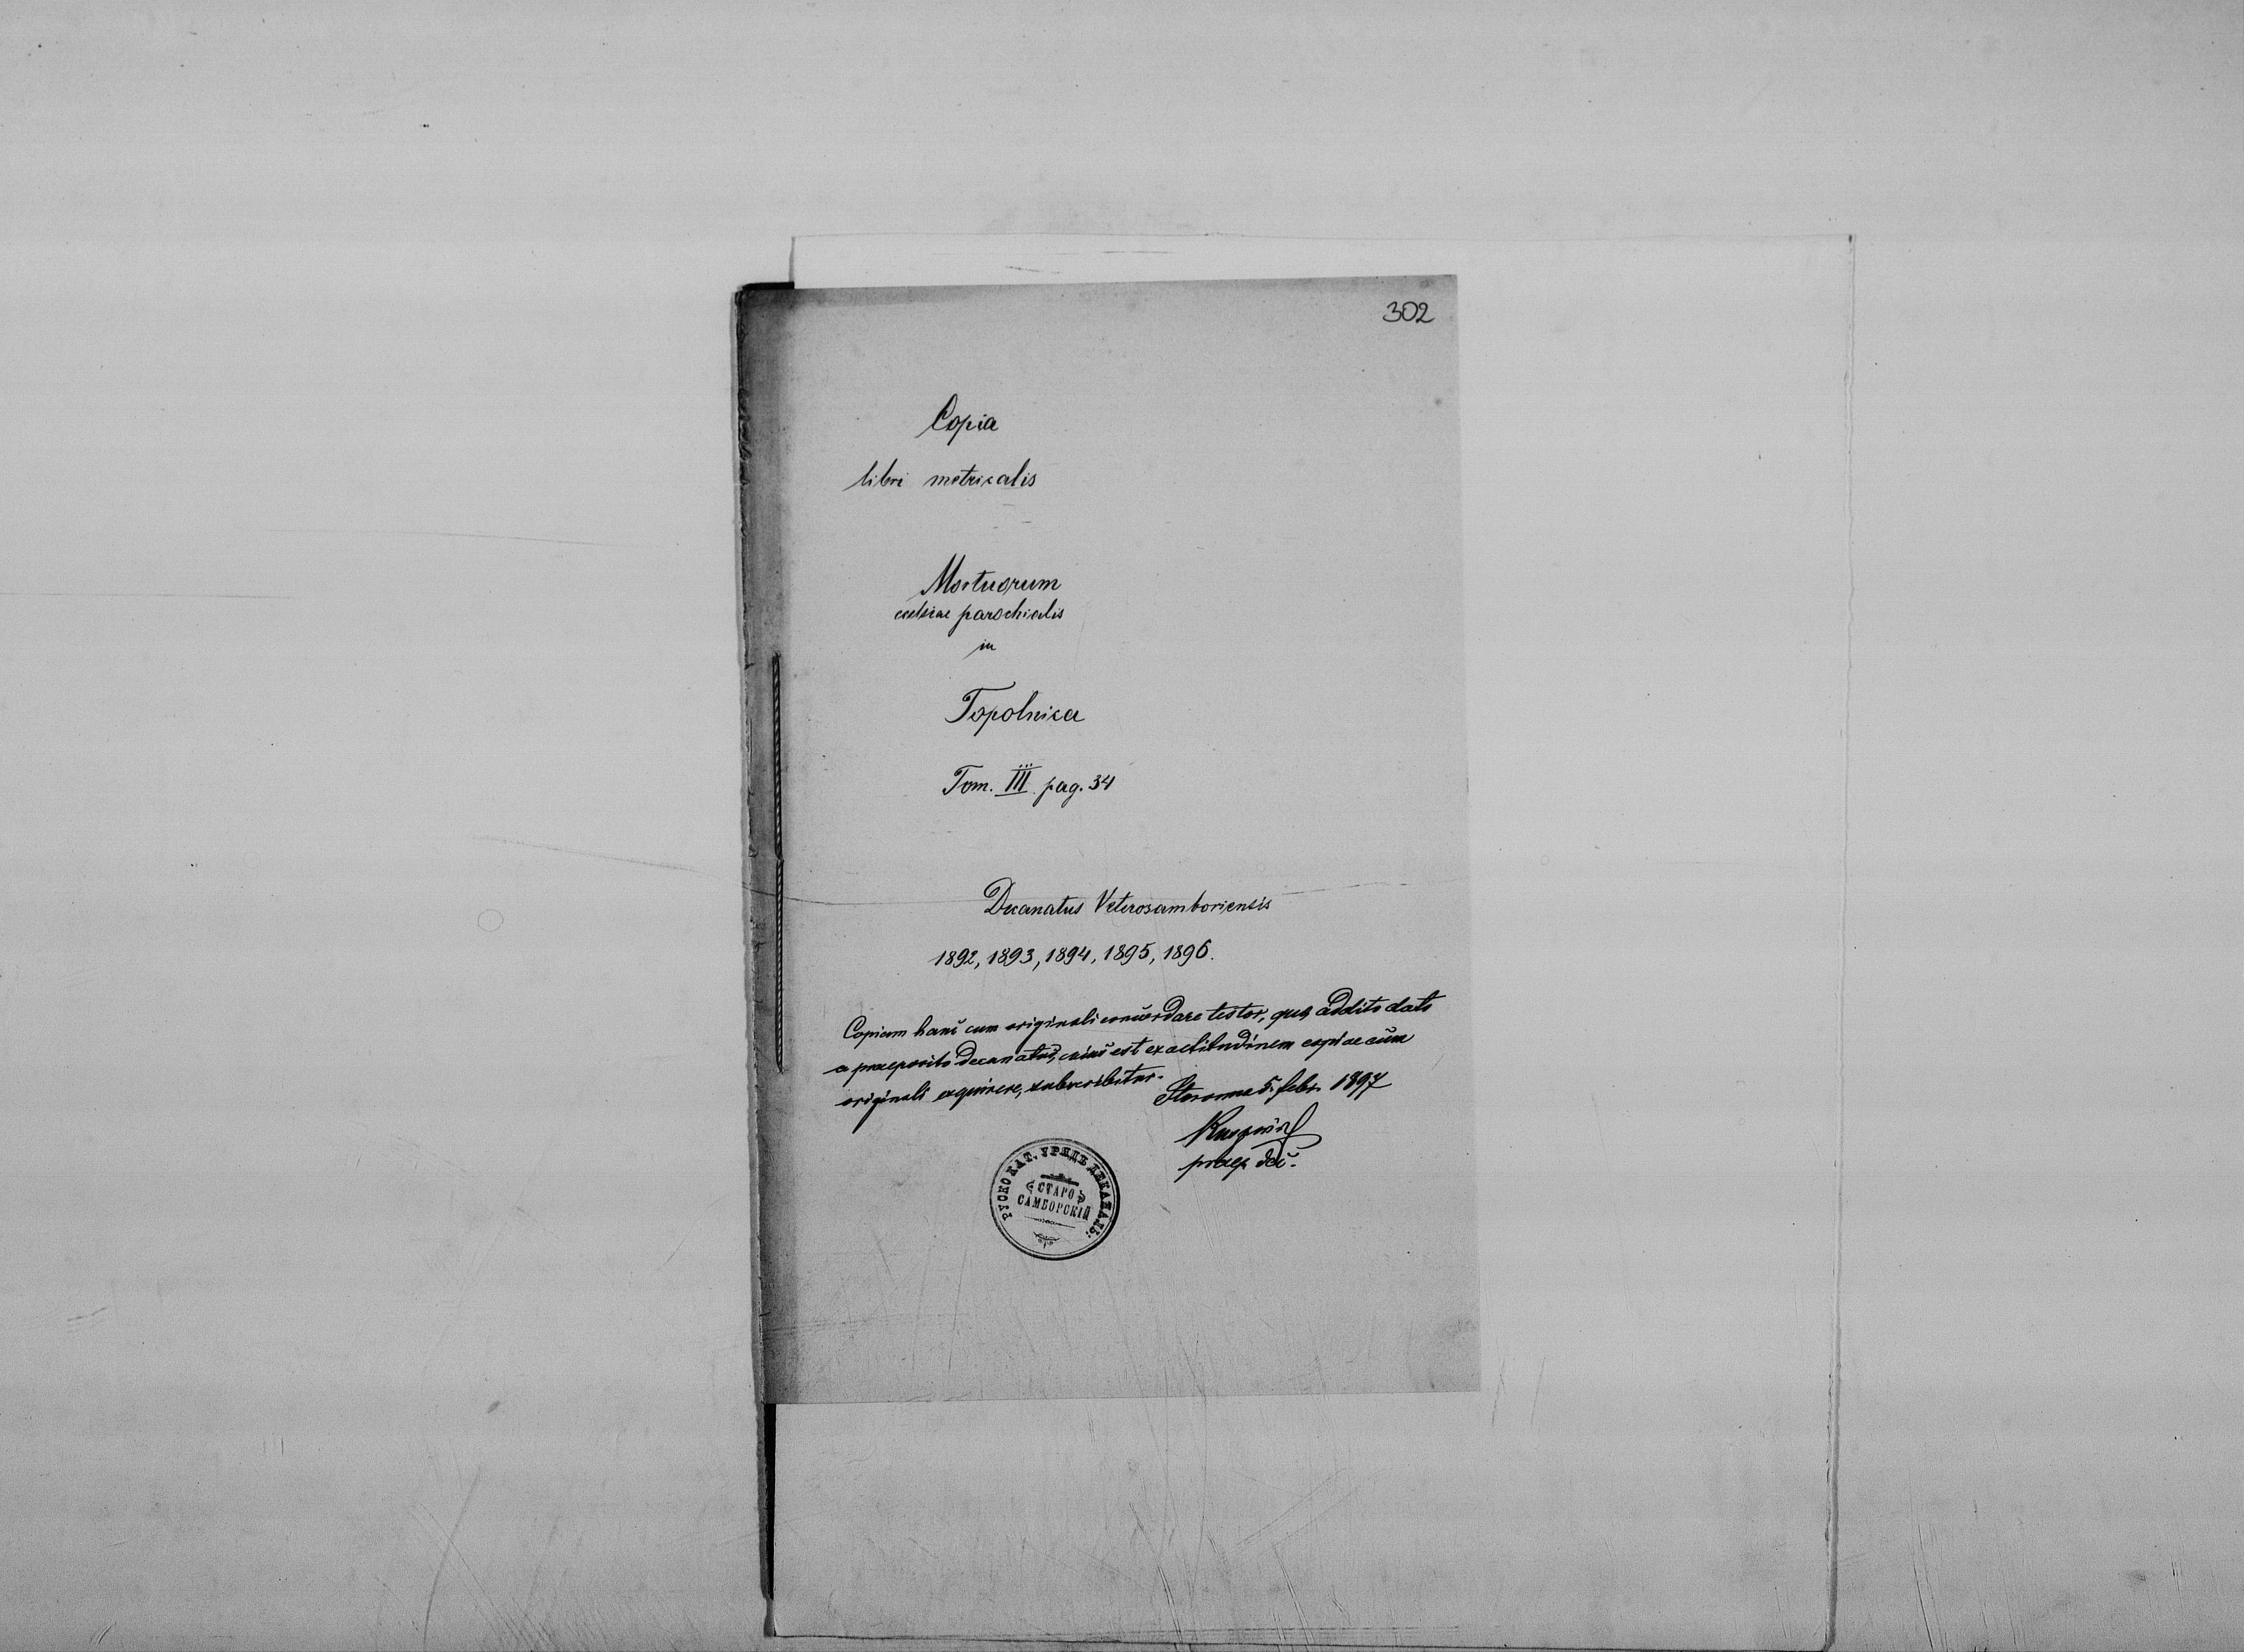 302
Copia
libri metricalis
Mortuorum
ecclesiae parochialis
in
Topolnica
Tom. III pag. 34
Decanatus Veterosamboriensis
1892, 1893, 1894, 1895, 1896.
Copiam hanc cum originali concordare testor, quae addito dato
a praeposito decanatus, cuius est exactitudinem copiae cum
originali exquirere, subscribitur.
5. febr. 1897
praep. dec.
РУСКО КАТ. УРЯДЪ ДЕКАНАЛЬ.
СТАРО
САМБОРСКІЙ